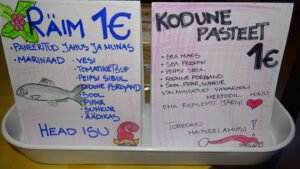 RÄIM 1€
• PANEERITUD JAHUS JA MUNAS
• MARINAAD • VESI
TOMATIKETSUP
PEIPSI SIBUL
KODUNE PORGAND
SOOL
PIPAR
SUHKUR
ÄÄDIKAS
HEAD ISU
KODUNE
PASTEET
1€
• SEA MAKS
• SEA PEKK
• PEIPSI SIBUL
• KODUNE PORGAND
• SOOL, PIPAR, SUHKUR
VALMISTATUD VANAAEGSEL
MEETODIL MINU
EMA RETSEPTI JÄRGI
TOREDAID
MAITSEELAMUSI